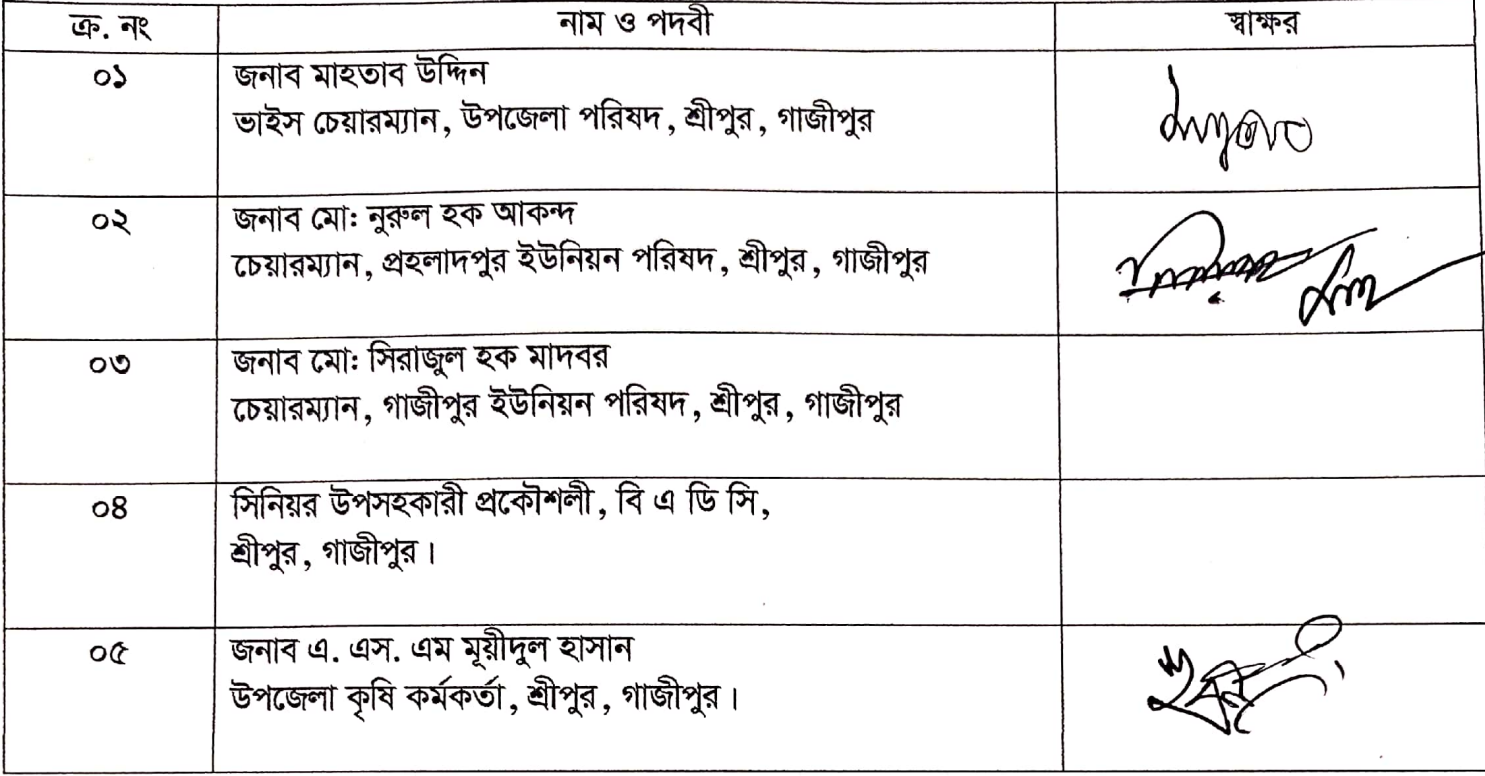 ক্র. নং নাম ও পদবী স্বাক্ষর
০১ জনাব মাহতাব উদ্দিন
ভাইস চেয়ারম্যান, উপজেলা পরিষদ, শ্রীপুর, গাজীপুর
০২ জনাব মো: নুরুল হক আকন্দ
চেয়ারম্যান, প্রহলাদপুর ইউনিয়ন পরিষদ, শ্রীপুর, গাজীপুর
০৩ জনাব মো: সিরাজুল হক মাদবর
চেয়ারম্যান, গাজীপুর ইউনিয়ন পরিষদ, শ্রীপুর, গাজীপুর
০৪ সিনিয়র উপসহকারী প্রকৌশলী, বি এ ডি সি,
শ্রীপুর, গাজীপুর।
০৫ জনাব এ. এস. এম মূয়ীদুল হাসান
উপজেলা কৃষি কর্মকর্তা, শ্রীপুর, গাজীপুর।